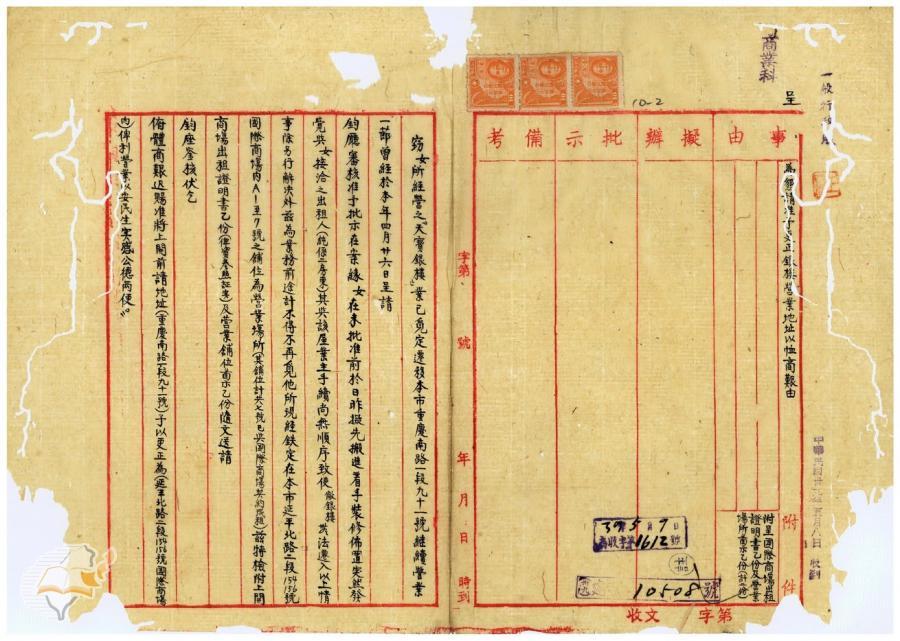 商業科
呈
10-2
事由
擬辦
批示
備考
為懇請准予更正銀樓營業地址以恤商艱由
附件
附呈國際商場出租
證明書乙份及營業
場所圖乙份(計二卷)
中華民國卅九年五月八日 收到
39年5月7日
商收字第1612號
10508號
收文 字第
字第 號 年 月 日 時到
竊女所經營之「天寶銀樓」業已覓定遷移本市重慶南路一段九十一號繼續營業
一節曾經於本年四月廿六日呈請
鈞廳審核准予批示在案緣女在未批准前於日昨擬先搬進着手裝修佈置突然發
覺與女接洽之出租人(純係二房東)其與該屋業主手續尚無順序致使敝銀樓無法遷入以上情
事除另行解決外茲為業務前途計不得不再覓他所現經鉄定在本市延平北路二段154156號
國際商場內A1至7號之舖位為營業場所(其舖位計共七號已與國際商場契約成租)茲特檢附上開
商場出租證明書乙份及營業舖位圖示乙份隨文送請
鈞座鑒核伏乞
俯體商艱迅賜准將上開前請地址(重慶南路一段九十一號)予以更正為(延平北路二段154156號國際商場
內)俾利營業以安民生實感公德兩便。